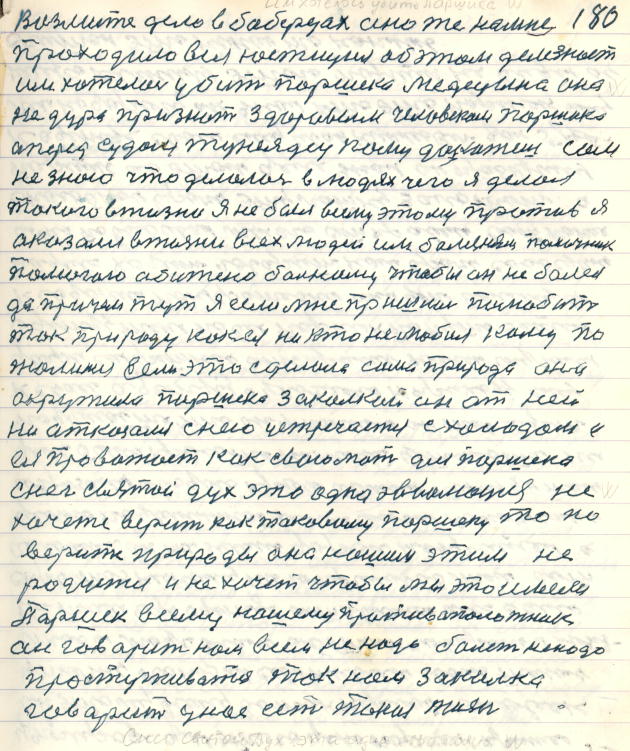 им хотелось убить паршика
Возмите дело в Бобердах оно же на мне 180
проходило вся юстиция об этом деле знает
им хотелося убить паршека медецына она
не дура признат здоровым человеком паршика
а перед судом тунеядец кому докажеш сам
не знаю что делалося в людях чего я делал
токого в жизни я не был всему этому против я
оказался в жизни всех людей им болезням помичник
помогаю обижено больному чтобы он не болел
да при чем тут я если мне пришлось полюбить
так природу как ея никто не любил кому по
жолился если это сделала сама природа она
окружила паршека заколкой он от ней
ни отказался с нею устречается с холодом и
ея провожает как свою мать для паршека
снег святой дух это одна эвволюция не
хочете верит как таковому паршеку то по
верите природы она нашим этим не
родуется и не хочет чтобы мы это имели
Паршек всему нашему противоположник
он говарит нам всем не надо болет не надо
простуживатся так нам закалка
говарит у нас ест такия жизн